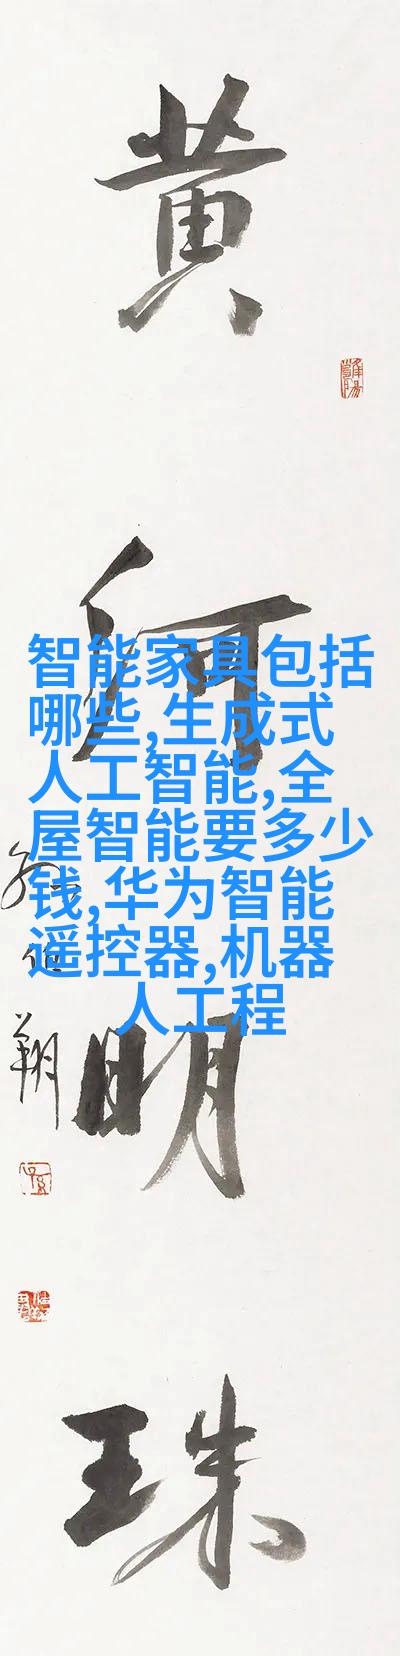 黄河明珠
智能家具包括
哪些,生成式
人工智能,全
屋智能要多少
钱,华为智能
遥控器,机器
人工程
翔